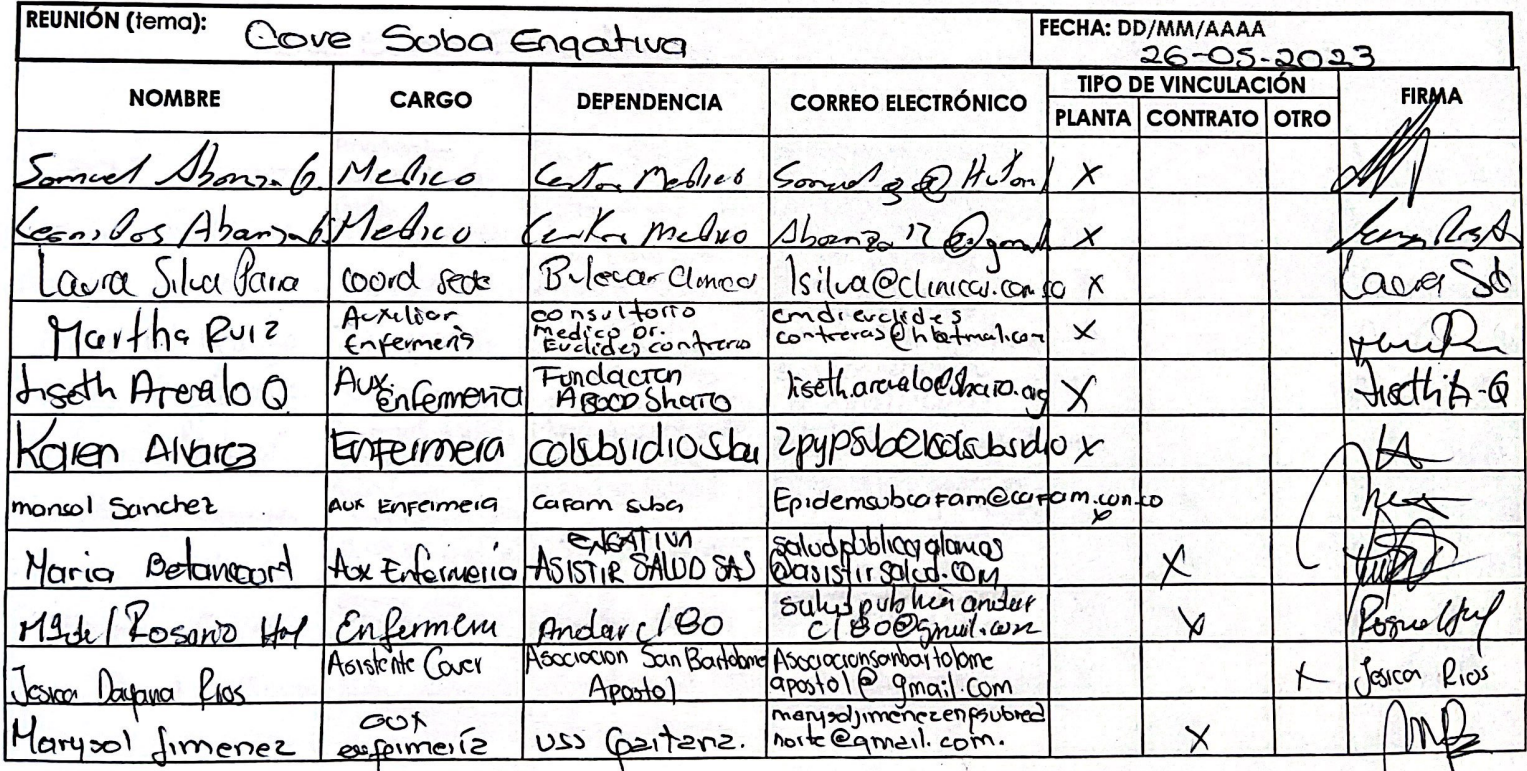 REUNIÓN (tema): Cove Suba Engativa
FECHA: DD/MM/AAAA
26-05-2023
NOMBRE CARGO DEPENDENCIA CORREO ELECTRÓNICO TIPO DE VINCULACIÓN FIRMA
PLANTA CONTRATO OTRO
Samuel Abanza G. Medico Centro Medico X
Leonidas Abanza G. Medico Centro Medico Abanza17@gmail X
Laura Silva Parra coord sede Bulevar Clinica lsilva@clinicai.com.co X Laura
Martha Ruiz Auxiliar Enfermeria consultorio Medico Dr. Euclides contreras emdieuclides contreras@hotmail.com X
Liseth Arevalo Q Aux enfermeria Fundacion Abood Shaio liseth.arevalo@shaio.org X
Karen Alvarez Enfermera colsubsidio Suba X
marisol Sanchez Aux Enfermeria Cafam suba Epidemsubcafam@cafam.com.co x
Maria Betancourt Aux Enfermeria ENGATIVA ASISTIR SALUD SAS @asistirsalud.com X
del Rosario Enfermera Andar cl 80 cl80@gmail.com X
Jesica Dayana Rios Asistente Cover Asociacion San Bartolome Apostol Asociacionsanbartolome apostol@gmail.com X Jesica Rios
Marysol Jimenez aux enfermería USS Gaitana. marysoljimenezenfsubred norte@gmail.com. X